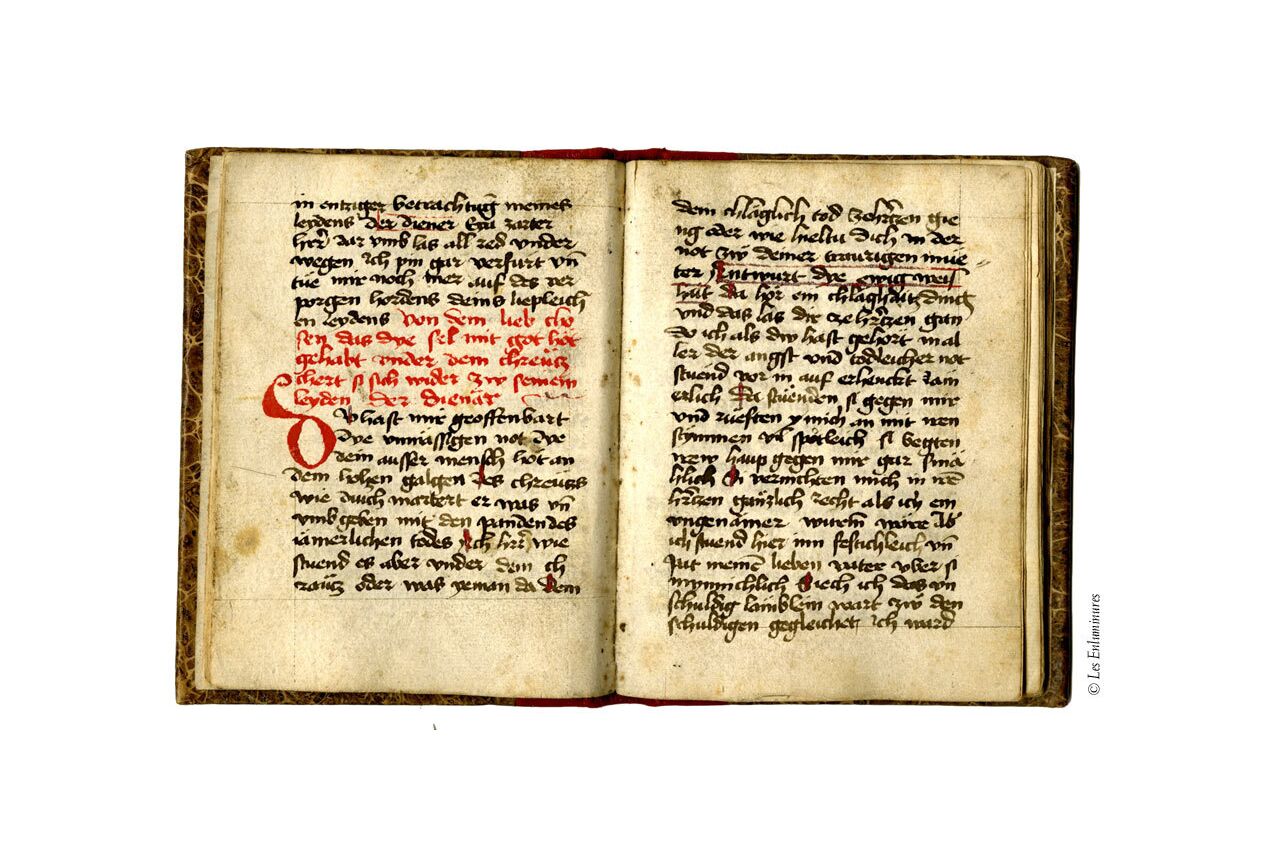 in entziger betrachtũg meines
leydens der diener Eya zarter
herr dar vmb las all red vnder
wegen ich pin gar verfurt vñ
tüe mir noch mer auf des ver
porgen hordens deins liepleich
en leydens von dem lieb cho
sen das dye sel mit got hot
gehabt vnder dem chreucz
chert si sich wider zw seinem
leyden der dienär
Du hast mir geoffenbart
dye vnmässigen not dye
dein ausser mensch hot an
dem hohen galgen des chreuczs
wie durch martert er was vñ
vmb geben mit den panden des
iämerlichen todes Ach herr wie
stuend es aber vnder dem ch
räucz oder was yeman da dem
dein chläglich tod zehertzen gie
ng oder wie hieltu dich in der
not zw deiner traurigen mue
ter Antwurt dye ewig weis
hait da hör ein chlaghaftz ding
vnd das las dir ze hertzen gan
do ich als dw hast gehort in al
ler der angst vnd todleicher not
stuend vor in auf erhenckt iäm
erlich Da stüenden si gegen mir
vnd rüeften mich an mit iren
stymmen vil spötleich si begten
irew haup gegen mir gar smä
hlich Si vernichten mich in irē
hertzen gänzlich recht als ich ein
vngenämer wurm wäre Ab
ich stuend hier inn festichleich vñ
pat meinē lieben vater vber si
mynnichlich Siech ich das vn
schuldig lämblein wart zw den
schuldigen gegleichet Ich ward
© Les Enluminures